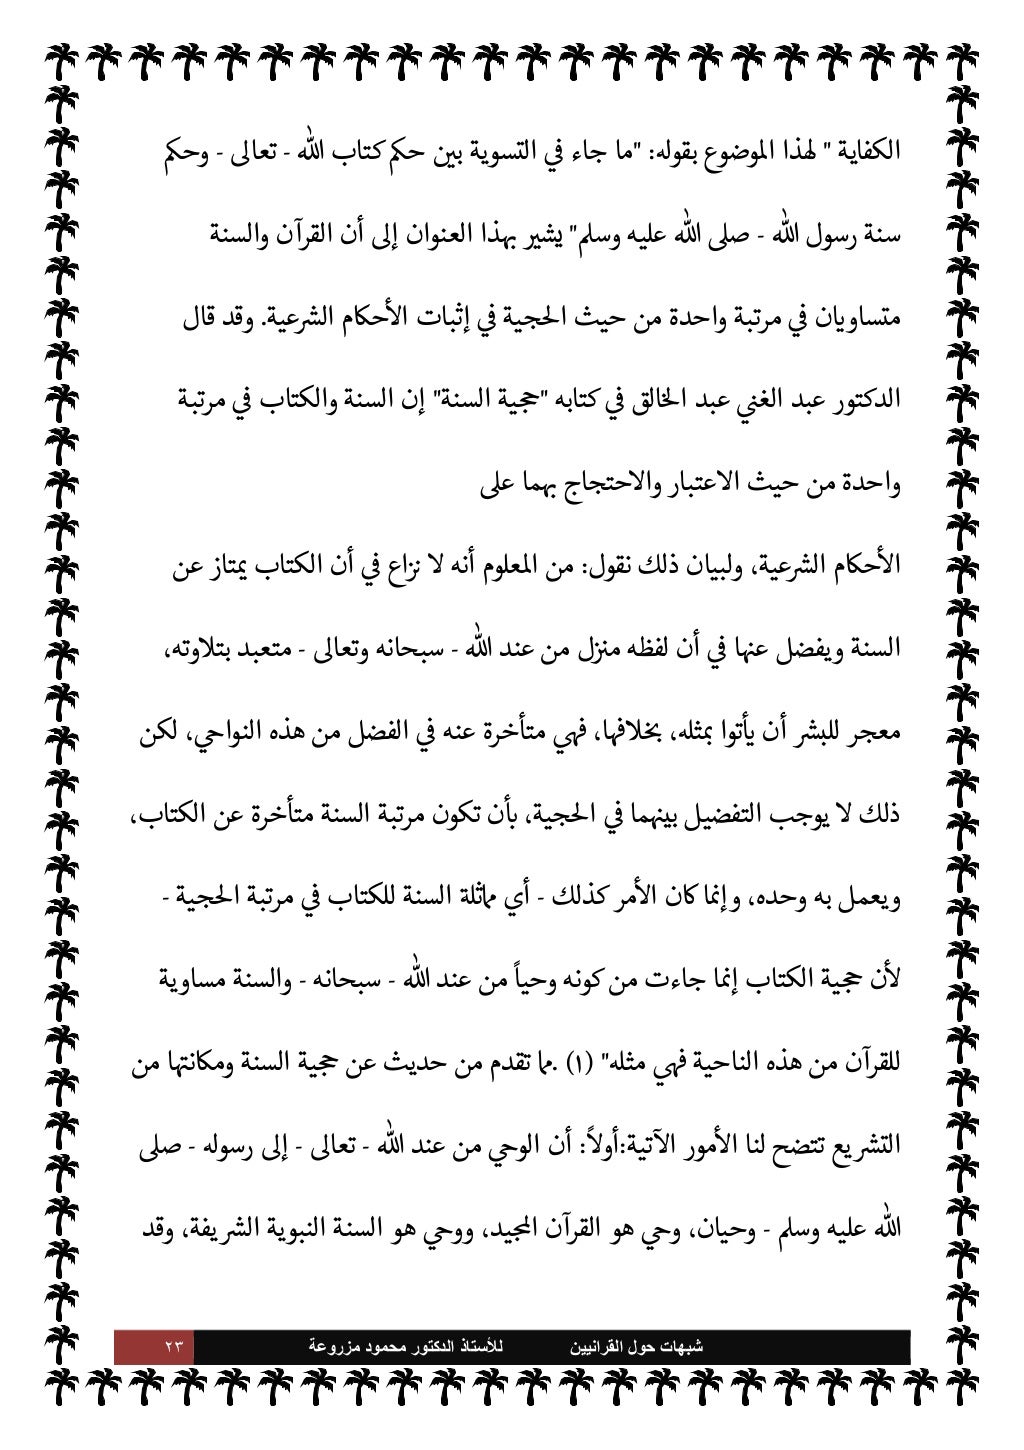 الكفاية " لهذا الموضوع بقوله: "ما جاء في التسوية بين حكم كتاب الله - تعالى - وحكم
سنة رسول الله - صلى الله عليه وسلم" يشير بهذا العنوان إلى أن القرآن والسنة
متساويان في مرتبة واحدة من حيث الحجية في إثبات الأحكام الشرعية. وقد قال
الدكتور عبد الغني عبد الخالق في كتابه "حجية السنة" إن السنة والكتاب في مرتبة
واحدة من حيث الاعتبار والاحتجاج بهما على
الأحكام الشرعية، ولبيان ذلك نقول: من المعلوم أنه لا نزاع في أن الكتاب يمتاز عن
السنة ويفضل عنها في أن لفظه منزل من عند الله - سبحانه وتعالى - متعبد بتلاوته،
معجر للبشر أن يأتوا بمثله، بخلافها، فهي متأخرة عنه في الفضل من هذه النواحي، لكن
ذلك لا يوجب التفضيل بينهما في الحجية، بأن تكون مرتبة السنة متأخرة عن الكتاب،
ويعمل به وحده، وإنما كان الأمر كذلك - أي مماثلة السنة للكتاب في مرتبة الحجية -
لأن حجية الكتاب إنما جاءت من كونه وحياً من عند الله - سبحانه - والسنة مساوية
للقرآن من هذه الناحية فهي مثله" (١) .مما تقدم من حديث عن حجية السنة ومكانتها من
التشريع تتضح لنا الأمور الآتية:أولاً: أن الوحي من عند الله - تعالى - إلى رسوله - صلى
الله عليه وسلم - وحيان، وحي هو القرآن المجيد، ووحي هو السنة النبوية الشريفة، وقد
شبهات حول القرانيين للأستاذ الدكتور محمود مزروعة ٢٣